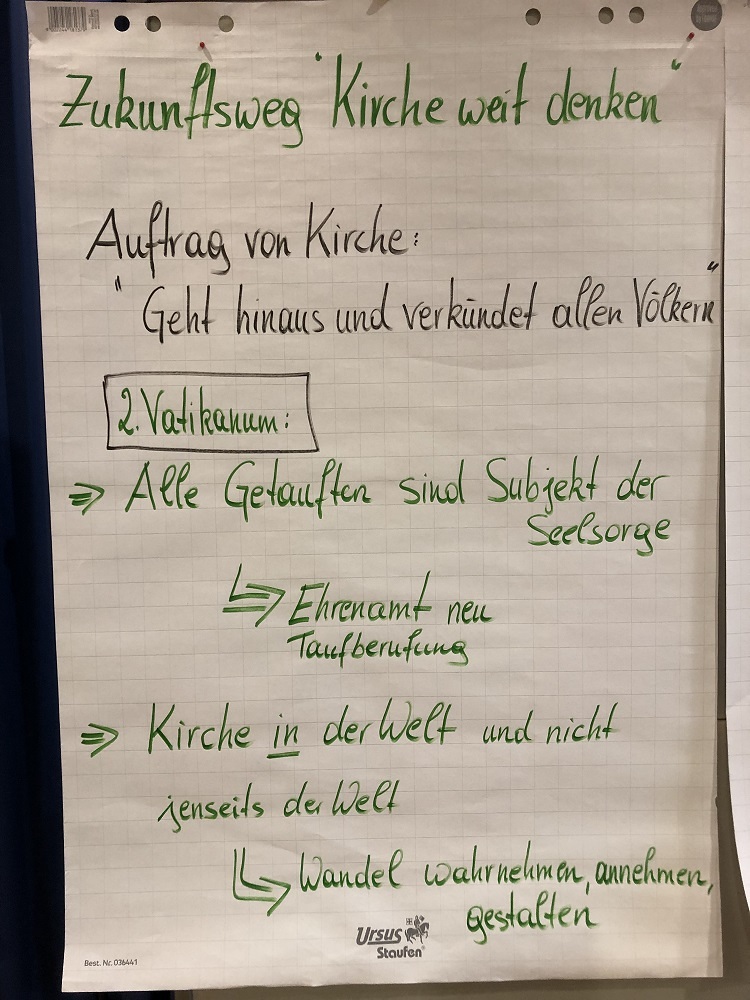 Zukunftsweg "Kirche weit denken"
Auftrag von Kirche:
"Geht hinaus und verkündet allen Völkern"
2. Vatikanum:
⇒ Alle Getauften sind Subjekt der
Seelsorge
Ehrenamt neu
Taufberufung
⇒ Kirche in der Welt und nicht
jenseits der Welt
Wandel wahrnehmen, annehmen,
gestalten
Ursus
Staufen
Best. Nr. 036441